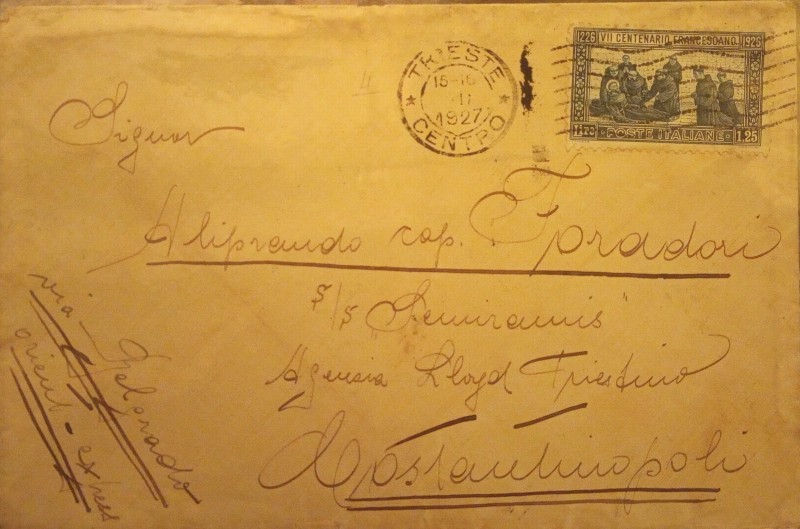 TRIESTE
15-16
II
1927
CENTRO
1226 VII CENTENARIO FRANCESCANO 1926
POSTE ITALIANE 1.25
Signor
Aliprando cap. Foradori
S/S "Semiramis"
Agensia Lloyd Triestino
Costantinopoli
via Belgrado
orient-expres